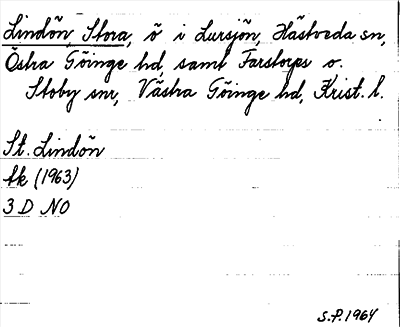 Lindön, Stora, ö i Lursjön, Hästveda sn,
Östra Göinge hd, samt Farstorps o.
Stoby snr, Västra Göinge hd, Krist. l.
St. Lindön
tk (1963)
3 D NO
S.P. 1964